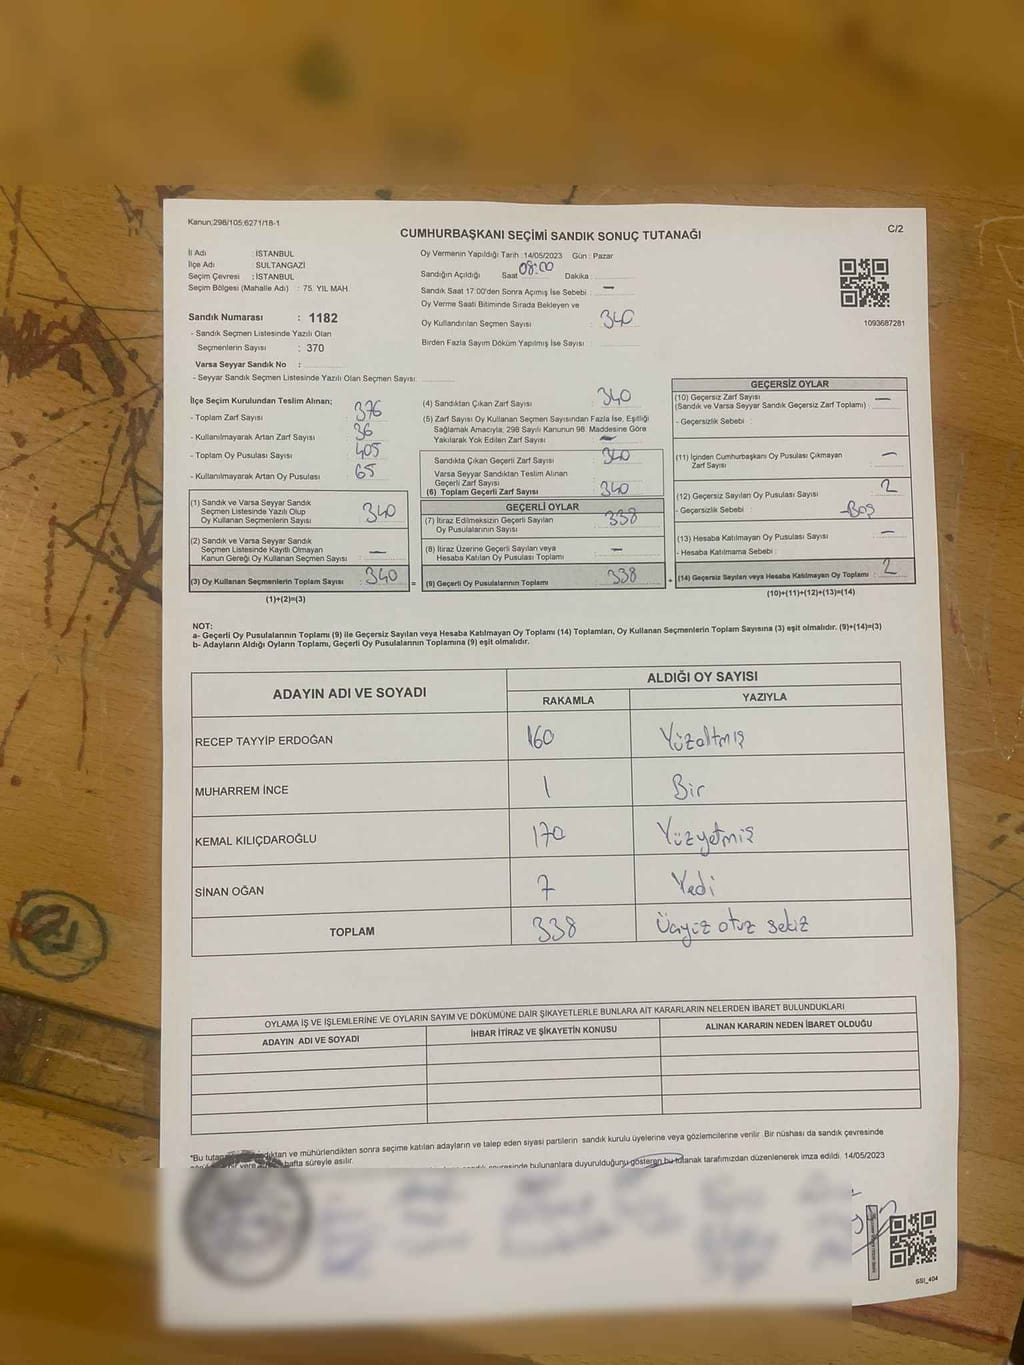 Kanun;298/105;6271/18-1
C/2
CUMHURBAŞKANI SEÇİMİ SANDIK SONUÇ TUTANAĞI
İl Adı : İSTANBUL
İlçe Adı : SULTANGAZİ
Seçim Çevresi : İSTANBUL
Seçim Bölgesi (Mahalle Adı) : 75. YIL MAH.
Sandık Numarası : 1182
- Sandık Seçmen Listesinde Yazılı Olan
Seçmenlerin Sayısı : 370
Varsa Seyyar Sandık No :
- Seyyar Sandık Seçmen Listesinde Yazılı Olan Seçmen Sayısı:
Oy Vermenin Yapıldığı Tarih :14/05/2023 Gün : Pazar
Sandığın Açıldığı Saat 08:00 Dakika :
Sandık Saat 17:00'den Sonra Açımış İse Sebebi : —
Oy Verme Saati Bitiminde Sırada Bekleyen ve
Oy Kullandırılan Seçmen Sayısı : 340
Birden Fazla Sayım Döküm Yapılmış İse Sayısı :
1093687281
İlçe Seçim Kurulundan Teslim Alınan;
- Toplam Zarf Sayısı : 376
- Kullanılmayarak Artan Zarf Sayısı : 36
- Toplam Oy Pusulası Sayısı : 405
- Kullanılmayarak Artan Oy Pusulası : 65
(1) Sandık ve Varsa Seyyar Sandık
Seçmen Listesinde Yazılı Olup
Oy Kullanan Seçmenlerin Sayısı : 340
(2) Sandık ve Varsa Seyyar Sandık
Seçmen Listesinde Kayıtlı Olmayan
Kanun Gereği Oy Kullanan Seçmen Sayısı : —
(3) Oy Kullanan Seçmenlerin Toplam Sayısı : 340
(1)+(2)=(3)
(4) Sandıktan Çıkan Zarf Sayısı : 340
(5) Zarf Sayısı Oy Kullanan Seçmen Sayısından Fazla İse, Eşitliği
Sağlamak Amacıyla; 298 Sayılı Kanunun 98. Maddesine Göre
Yakılarak Yok Edilen Zarf Sayısı : —
Sandıkta Çıkan Geçerli Zarf Sayısı : 340
Varsa Seyyar Sandıktan Teslim Alınan
Geçerli Zarf Sayısı
(6) Toplam Geçerli Zarf Sayısı : 340
GEÇERLİ OYLAR
(7) İtiraz Edilmeksizin Geçerli Sayılan
Oy Pusulalarının Sayısı : 338
(8) İtiraz Üzerine Geçerli Sayılan veya
Hesaba Katılan Oy Pusulası Toplamı : —
= (9) Geçerli Oy Pusulalarının Toplamı : 338
GEÇERSİZ OYLAR
(10) Geçersiz Zarf Sayısı
(Sandık ve Varsa Seyyar Sandık Geçersiz Zarf Toplamı) : —
- Geçersizlik Sebebi :
(11) İçinden Cumhurbaşkanı Oy Pusulası Çıkmayan
Zarf Sayısı : —
(12) Geçersiz Sayılan Oy Pusulası Sayısı : 2
- Geçersizlik Sebebi : -Boş
(13) Hesaba Katılmayan Oy Pusulası Sayısı : —
- Hesaba Katılmama Sebebi :
+ (14) Geçersiz Sayılan veya Hesaba Katılmayan Oy Toplamı : 2
(10)+(11)+(12)+(13)=(14)
NOT:
a- Geçerli Oy Pusulalarının Toplamı (9) ile Geçersiz Sayılan veya Hesaba Katılmayan Oy Toplamı (14) Toplamları, Oy Kullanan Seçmenlerin Toplam Sayısına (3) eşit olmalıdır. (9)+(14)=(3)
b- Adayların Aldığı Oyların Toplamı, Geçerli Oy Pusulalarının Toplamına (9) eşit olmalıdır.
ADAYIN ADI VE SOYADI
ALDIĞI OY SAYISI
RAKAMLA YAZIYLA
RECEP TAYYİP ERDOĞAN 160 Yüzaltmış
MUHARREM İNCE 1 Bir
KEMAL KILIÇDAROĞLU 170 Yüzyetmiş
SİNAN OĞAN 7 Yedi
TOPLAM 338 Üçyüz otuz sekiz
OYLAMA İŞ VE İŞLEMLERİNE VE OYLARIN SAYIM VE DÖKÜMÜNE DAİR ŞİKAYETLERLE BUNLARA AİT KARARLARIN NELERDEN İBARET BULUNDUKLARI
ADAYIN ADI VE SOYADI İHBAR İTİRAZ VE ŞİKAYETİN KONUSU ALINAN KARARIN NEDEN İBARET OLDUĞU
*Bu sonra seçime katılan adayların ve talep eden siyasi partilerin sandık kurulu üyelerine veya gözlemcilerine verilir. Bir nüshası da sandık çevresinde
hafta süreyle asılır.
bulunanlara duyurulduğunu gösteren bu tutanak tarafımızdan düzenlenerek imza edildi. 14/05/2023
SSİ_404